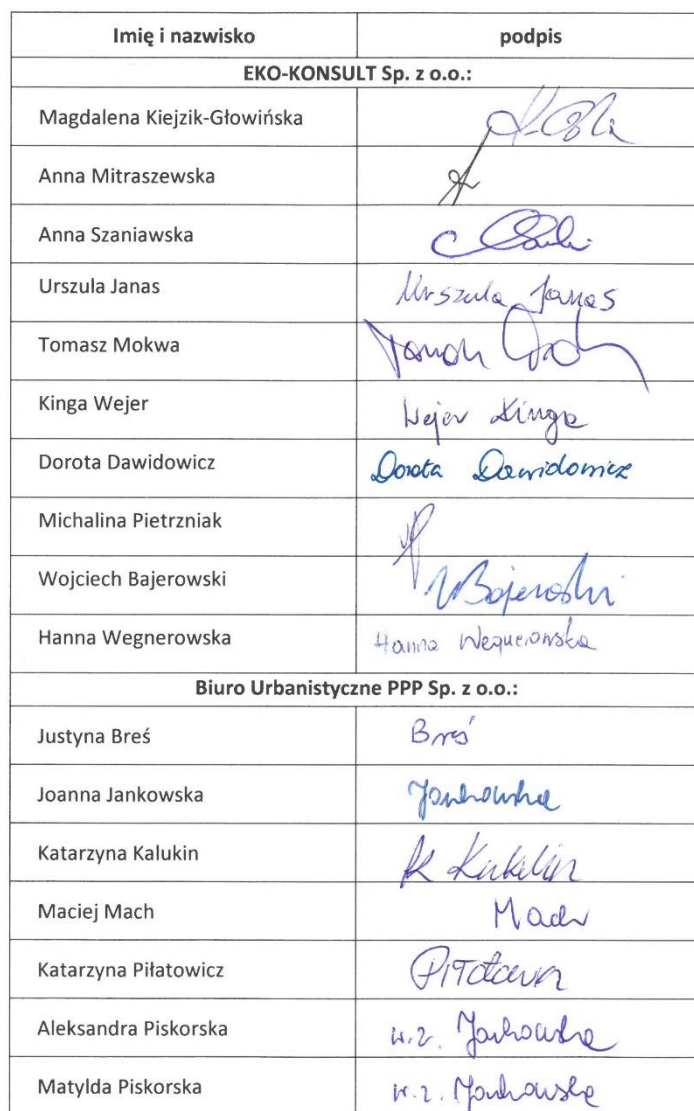 Imię i nazwisko podpis
EKO-KONSULT Sp. z o.o.:
Magdalena Kiejzik-Głowińska
Anna Mitraszewska
Anna Szaniawska
Urszula Janas Urszula Janas
Tomasz Mokwa
Kinga Wejer Wejer Kinga
Dorota Dawidowicz Dorota Dawidowicz
Michalina Pietrzniak
Wojciech Bajerowski WBajerowski
Hanna Wegnerowska Hanna Wegnerowska
Biuro Urbanistyczne PPP Sp. z o.o.:
Justyna Breś Breś
Joanna Jankowska Jankowska
Katarzyna Kalukin K Kalukin
Maciej Mach Mach
Katarzyna Piłatowicz
Aleksandra Piskorska w.z. Jankowska
Matylda Piskorska w.z. Jankowska